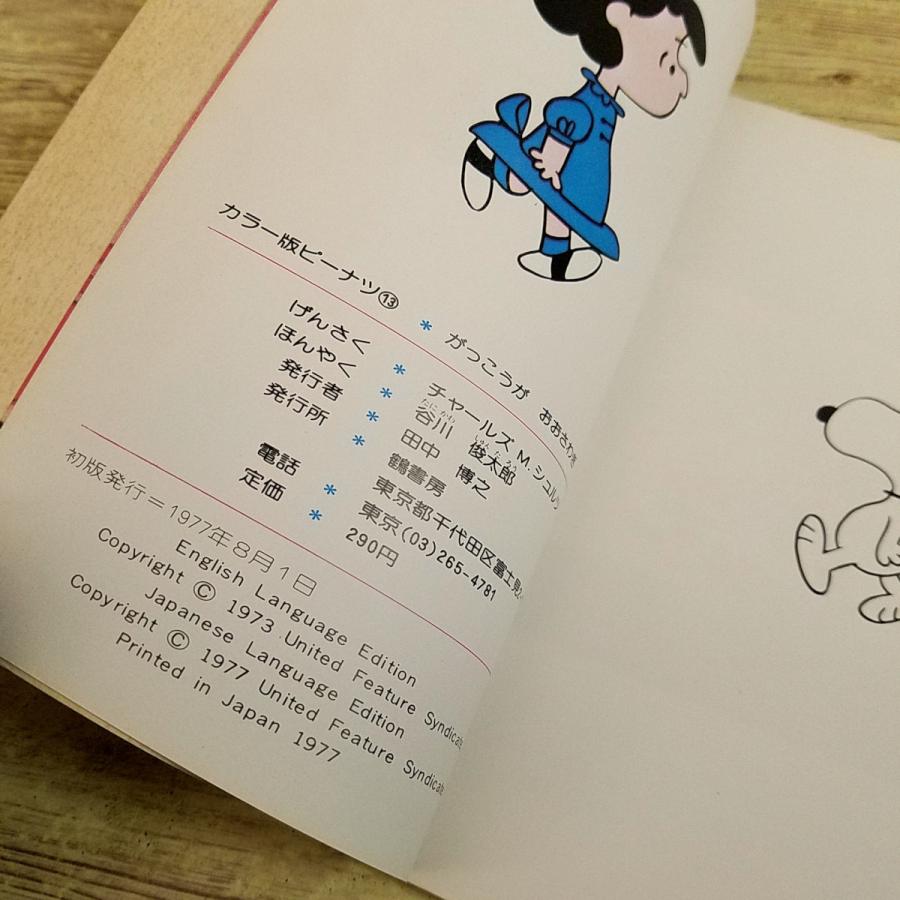 カラー版ピーナツ⑬ * がっこうが おおさわぎ
げんさく * チャールズ M. シュルツ
ほんやく * 谷川 俊太郎
たにかわ しゅんたろう
発行者 * 田中 博之
発行所 * 鶴書房
東京都千代田区富士見2
電話 * 東京(03)265-4781
定価 * 290円
初版発行=1977年8月1日
English Language Edition
Copyright © 1973 United Feature Syndicate
Japanese Language Edition
Copyright © 1977 United Feature Syndicate
Printed in Japan 1977